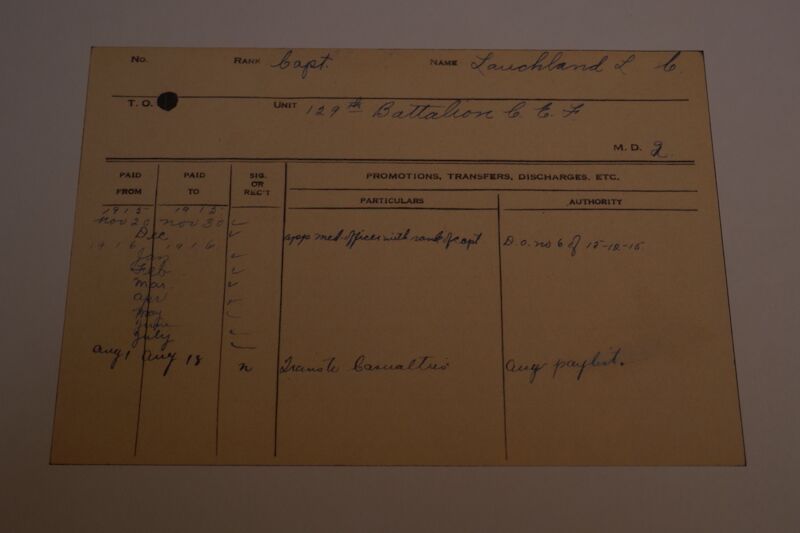 No. RANK Capt. NAME Lauchland L C.
T. O. UNIT 129th Battalion C. E. F
M. D. 2
PAID FROM PAID TO SIG. OR REC'T PROMOTIONS, TRANSFERS, DISCHARGES, ETC.
PARTICULARS AUTHORITY
1915 1915
Nov 20 Nov 30 ✓
Dec ✓ app med officer with rank of capt D.O. no 6 of 15-12-15
1916 1916
Jan ✓
Feb ✓
Mar. ✓
Apr ✓
May ✓
June
July ✓
Aug 1 Aug 18 n Casualties Aug paylist.